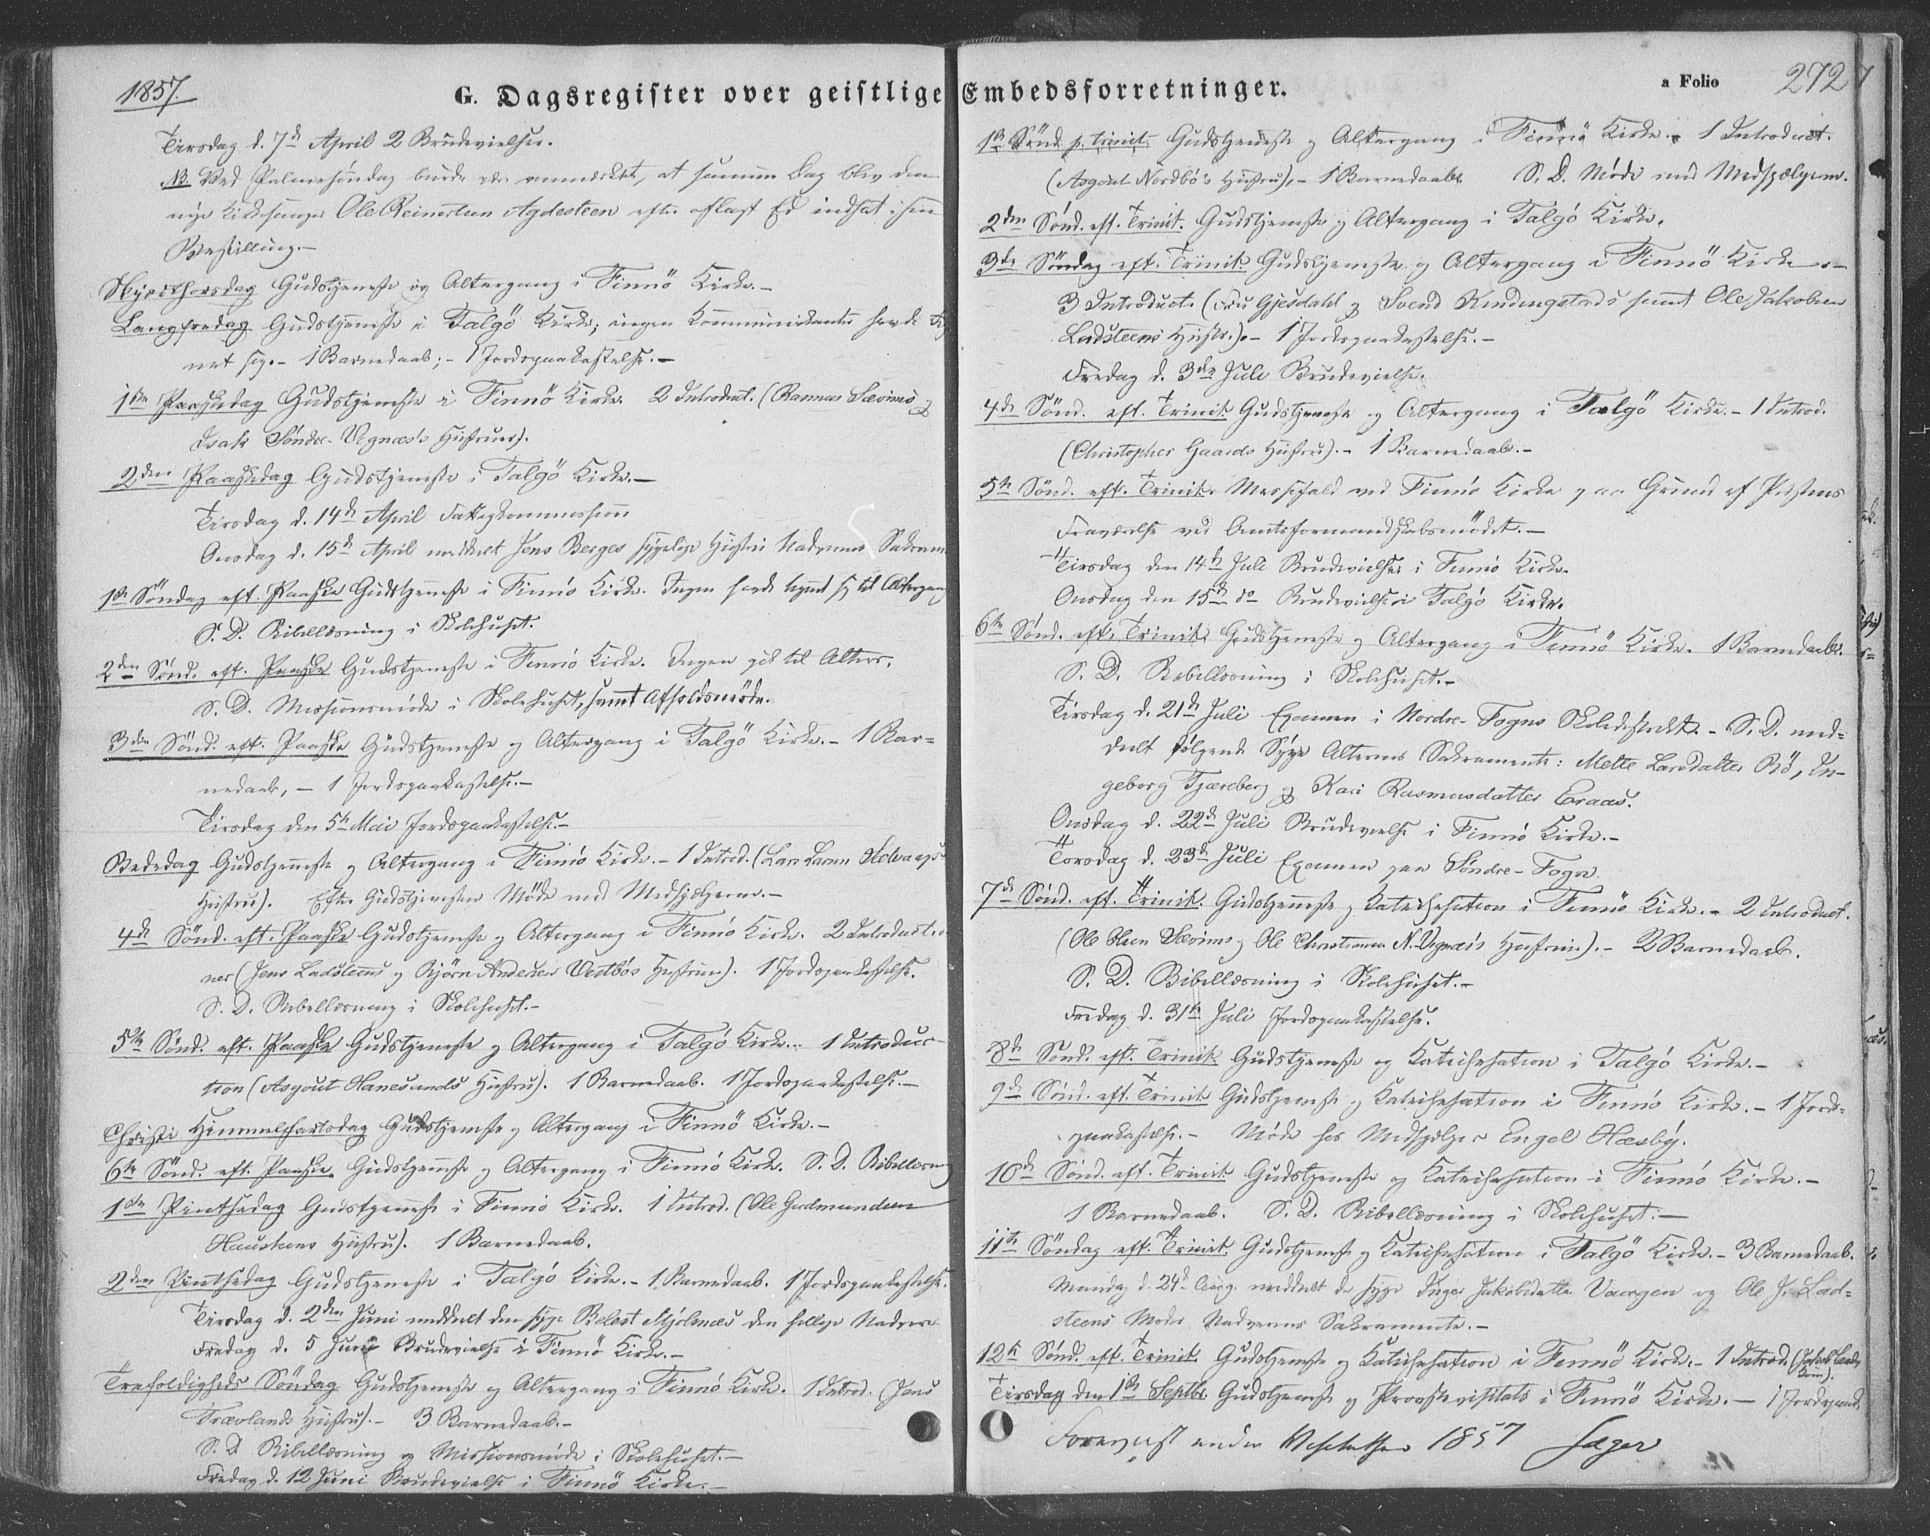 1857.
G. Dagsregister over geistlige Embedsforretninger.
a Folio 292
Tirsdag d. 7de April 2 Brudevielser.
NB. Ved Palmesøndag burde være anmærket, at samme Dag blev den
nye Kirkesanger Ole Reinertsen Agdesteen efter aflagt Ed indsat i sin
Bestilling.-
Skjærthorsdag Gudstjeneste og Altergang i Finnö Kirke.-
Langfredag Gudstjeneste i Talgö Kirke; ingen Kommunikanter havde teg-
net sig.- 1 Barnedaab; - 1 Jordspaakastelse.-
1ste Paaskedag Gudstjeneste i Finnö Kirke. 2 Introduct. (Rannas Sævims og
Isak Sönder-Vignæs's Hustruer).
2den Paaskedag Gudstjeneste i Talgö Kirke.-
Tirsdag d. 14de April Fattigkommission
Onsdag d. 15de April meddelt Jens Berges sygelige Hustru Nadverens Sakram.
1ste Söndag eft. Paaske Gudstjeneste i Finnö Kirke. Ingen havde tegnet sig til Altergang
S. D. Bibellæsning i Skolehuset.
2den Sönd. eft. Paaske Gudstjeneste i Finnö Kirke. Ingen gik til Alters.
S. D. Missionsmöde i Skolehuset, samt Afholdsmöde.
3die Sönd. eft. Paaske Gudstjeneste og Altergang i Talgö Kirke.- 1 Bar-
nedaab, - 1 Jordspaakastelse.-
Tirsdag den 5te Mai Jordspaakastelse.-
Bededag Gudstjeneste og Altergang i Finnö Kirke.- 1 Introd. (Lars Larsen
Hustru). Efter Gudstjenesten Möde med Medhjelperne.-
4de Sönd. eft. Paaske Gudstjeneste og Altergang i Finnö Kirke. 2 Introductio-
ner (Jens Ladsteens og Björn Andersen Vestbös Hustruer). 1 Jordspaakastelse.
S. D. Bibellæsning i Skolehuset.-
5te Sönd. eft. Paaske Gudstjeneste og Altergang i Talgö Kirke.- 1 Introduc-
tion (Asgout Hanesunds Hustru). 1 Barnedaab. 1 Jordspaakastelse.-
Christi Himmelfartsdag Gudstjeneste og Altergang i Finnö Kirke.-
6te Sönd. eft. Paaske Gudstjeneste og Altergang i Finnö Kirke. S. D. Bibellæsning
1ste Pintsedag Gudstjeneste i Finnö Kirke. 1 Introd. (Ole Gudmundsen
Hauskens Hustru). 1 Barnedaab.
2den Pintsedag Gudstjeneste i Talgö Kirke.- 1 Barnedaab. 1 Jordspaakastelse.
Tirsdag d. 2den Juni meddelt den syge Belest Mjölsnæs den hellige Nadvere
Fredag d. 5 Juni Brudevielse i Finnö Kirke.-
Trefoldigheds Söndag Gudstjeneste og Altergang i Finnö Kirke. 1 Introd. (Jens
Trævlands Hustru).- 3 Barnedaab.-
S. D. Bibellæsning og Missionsmöde i Skolehuset.-
Fredag d. 12 Juni Brudevielse i Finnö Kirke.-
1ste Sönd. p. Trinit. Gudstjeneste og Altergang i Finnö Kirke.- 1 Introduct.
(Asgout Nordbö's Hustru).- 1 Barnedaab. S. D. Möde med Medhjelperne.
2den Sönd. eft. Trinit. Gudstjeneste og Altergang i Talgö Kirke.
3die Söndag eft. Trinit. Gudstjeneste og Altergang i Finnö Kirke.-
3 Introduct. (Fru Gjesdahl og Svend Kindingstads samt Ole Jakobsen
Ladsteens Hustr.).- 1 Jordspaakastelse.-
Fredag d. 3die Juli Brudevielse.
4de Sönd. eft. Trinit. Gudstjeneste og Altergang i Talgö Kirke.- 1 Introd.
(Christopher Gaards Hustru).- 1 Barnedaab.-
5te Sönd. eft. Trinit. Messefald ved Finnö Kirke paa Grund af Prestens
Fraværelse ved Amtsformandskabsmödet.-
Tirsdag den 14de Juli Brudevielse i Finnö Kirke.
Onsdag den 15de do Brudevielse i Talgö Kirke.
6te Sönd. eft. Trinit. Gudstjeneste og Altergang i Finnö Kirke. 1 Barnedaab.
S. D. Bibellæsning i Skolehuset.-
Tirsdag d. 21de Juli Examen i Nordre-Fogns Skoledistrikt.- S. D. med-
deelt fölgende Syge Alterens Sakramente: Mette Larsdatter Bö, In-
geborg Fjæreberg og Kari Rasmusdatter Eraas.
Onsdag d. 22de Juli Brudevielse i Finnö Kirke.-
Torsdag d. 23de Juli Examen paa Söndre-Fogn.
7de Sönd. eft. Trinit. Gudstjeneste og Katechisation i Finnö Kirke.- 2 Introduct.
(Ole Olsen Sævims og Ole Christensen N. Vignæs's Hustruer).- 2 Barnedaab.
S. D. Bibellæsning i Skolehuset.-
Fredag d. 31te Juli Jordspaakastelse.
8de Sönd. eft. Trinit. Gudstjeneste og Katechisation i Talgö Kirke.-
9de Sönd. eft. Trinit. Gudstjeneste og Katechisation i Finnö Kirke.- 1 Jord-
spaakastelse.- Möde hos Medhjelper Engel Hæsby.
10de Sönd. eft. Trinit. Gudstjeneste og Katechisation i Finnö Kirke.-
1 Barnedaab. S. D. Bibellæsning i Skolehuset.-
11te Söndag eft. Trinit. Gudstjeneste og Katechisation i Talgö Kirke.- 3 Barnedaab.
Mandag d. 24de Aug. meddelt de syge Inger Jakobsdatter Vaagen og Ole J. Lad-
steens Moder Nadverens Sakramente.-
12te Sönd. eft. Trinit. Gudstjeneste og Katechisation i Finnö Kirke.- 1 Introd.
Tirsdag den 1ste Septbr. Gudstjeneste og Provstevisitats i Finnö Kirke.- 1 Jordspaak.
Forevist under Visitatsen 1857 Jæger